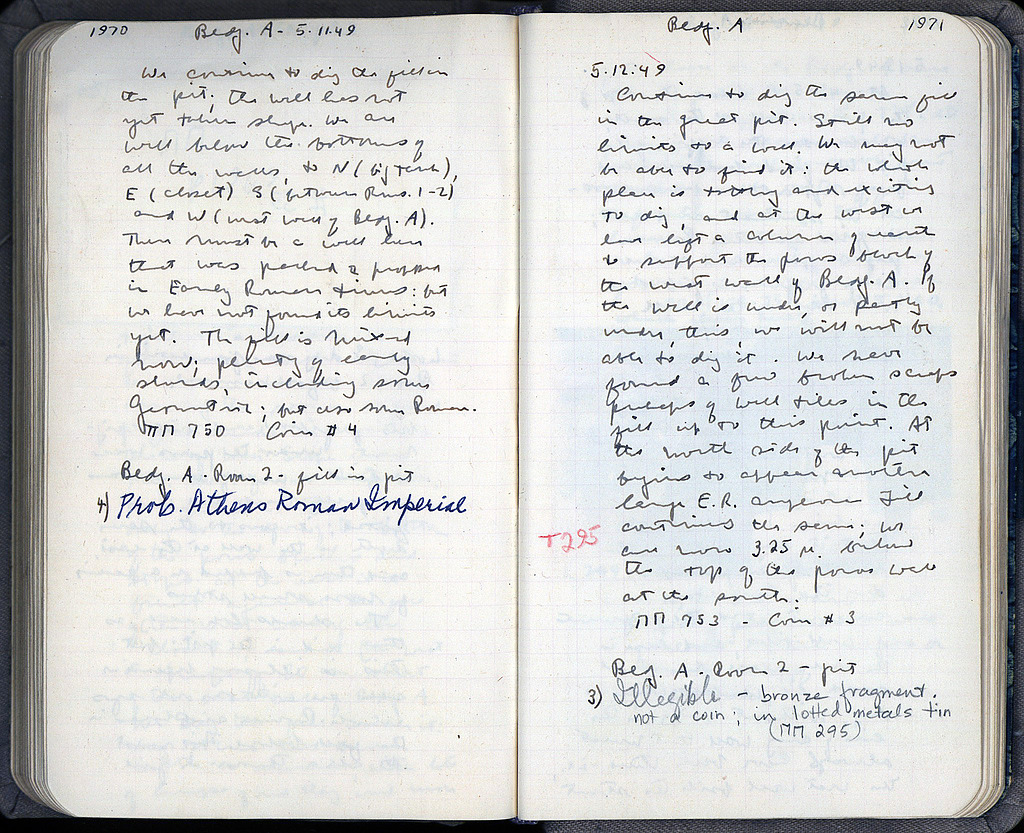 1970 Bldg. A - 5.11.49
We continue to dig the fill in
the pit; the well has not
yet taken shape. We are
well below the bottoms of
all the walls, to N (big rect),
E (closet) S (between Rms. 1-2)
and W (west wall of Bldg. A).
There must be a well here
that was packed &
in Early Roman times: but
we have not found its limits
yet. The fill is mixed
now; plenty of early
sherds, including some
Geometric; but also some Roman.
ΠΠ 750 Coin # 4
Bldg. A - Room 2 - fill in pit
4) Prob. Athens Roman Imperial
Bldg. A 1971
5.12.49
Continue to dig the same fill
in the great pit. Still no
limits to a well. We may not
be able to find it: the whole
place is and exciting
to dig, and at the west we
have left a column of earth
to support the poros blocks of
the west wall of Bldg. A. If
the well is under, or partly
under, this, we will not be
able to dig it. We have
found a few broken scraps
perhaps of well tiles in the
fill up to this point. At
the north side of the pit
begins to appear another
large E.R. amphora. Fill
continues the same; we
T 295
are now 3.25 m. below
the top of the poros wall
at the south.
ΠΠ 753 - Coin # 3
Bldg. A - Room 2 - pit
3) Illegible - bronze fragment.
not a coin; in lotted metals tin
(ΠΠ 295)